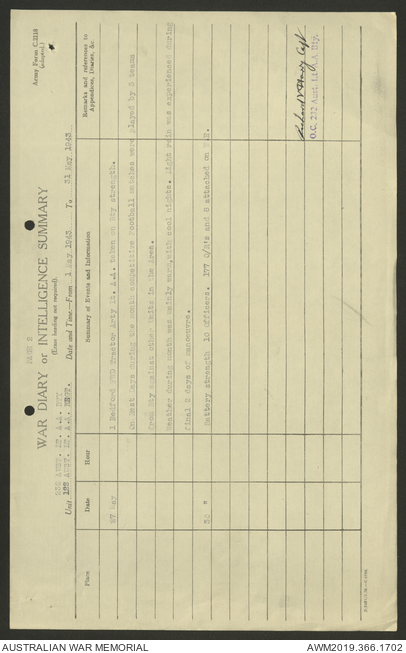 Army Form C.2118
(adapted.)
PAGE 2
WAR DIARY or INTELLIGENCE SUMMARY
(Erase heading not required).
232 AUST. LT. A.A. BTY.
Unit Date and Time.—From 1 May 1943 To 31 May 1943
Place Date Hour Summary of Events and Information Remarks and references to
Appendices, Diaries, &c.
27 May 1 Bedford Tractor Arty Lt. A.A. taken on Bty strength.
On Rest Days during the month competitive Football matches were played by 3 teams
from Bty against other Units in the Area.
Weather during month was mainly warm, with cool nights. Light rain was experienced during
final 2 days of manoeuvre.
" Battery strength 10 Officers. 177 O/R's and 8 attached on W.E.
Capt
O.C. 232 Aust. Lt. A.A. Bty.
AUSTRALIAN WAR MEMORIAL AWM2019.366.1702